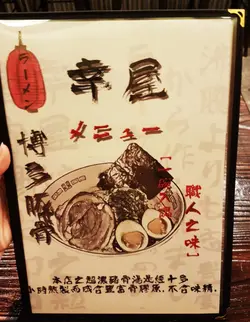 ラーメン
幸屋
メニュー
博多豚骨
職人之味
本店之超濃豬骨湯底經十多
小時熬製而成含豐富骨膠原，不含味精.